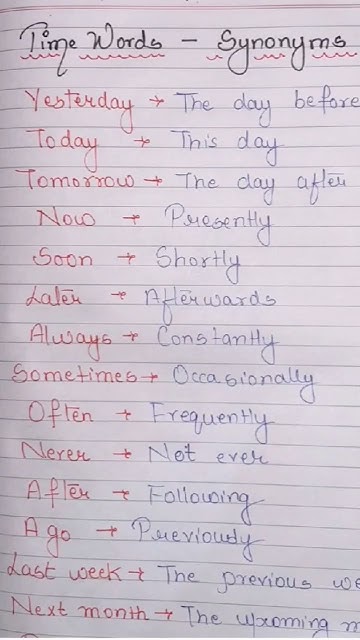 Time Words - Synonyms
Yesterday → The day before
Today → This day
Tomorrow → The day after
Now → Presently
Soon → Shortly
Later → Afterwards
Always → Constantly
Sometimes → Occasionally
Often → Frequently
Never → Not ever
After → Following
Ago → Previously
Last week → The previous we
Next month → The upcoming m